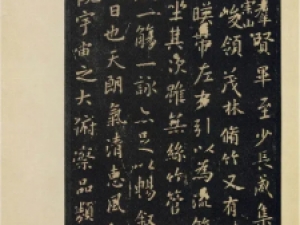 羣賢畢至少長咸集
崇山
峻領茂林脩竹又有
暎帶左右引以為流觴
坐其次雖無絲竹管
一觴一詠亦足以暢敘
日也天朗氣清惠風
觀宇宙之大俯察品類